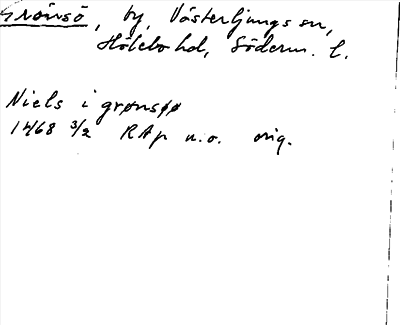 Grönsö, by, Västerljungs sn,
Hölebo hd, Söderm. l.
Niels i grønsøø
1468 3/2 RAp u.o. orig.